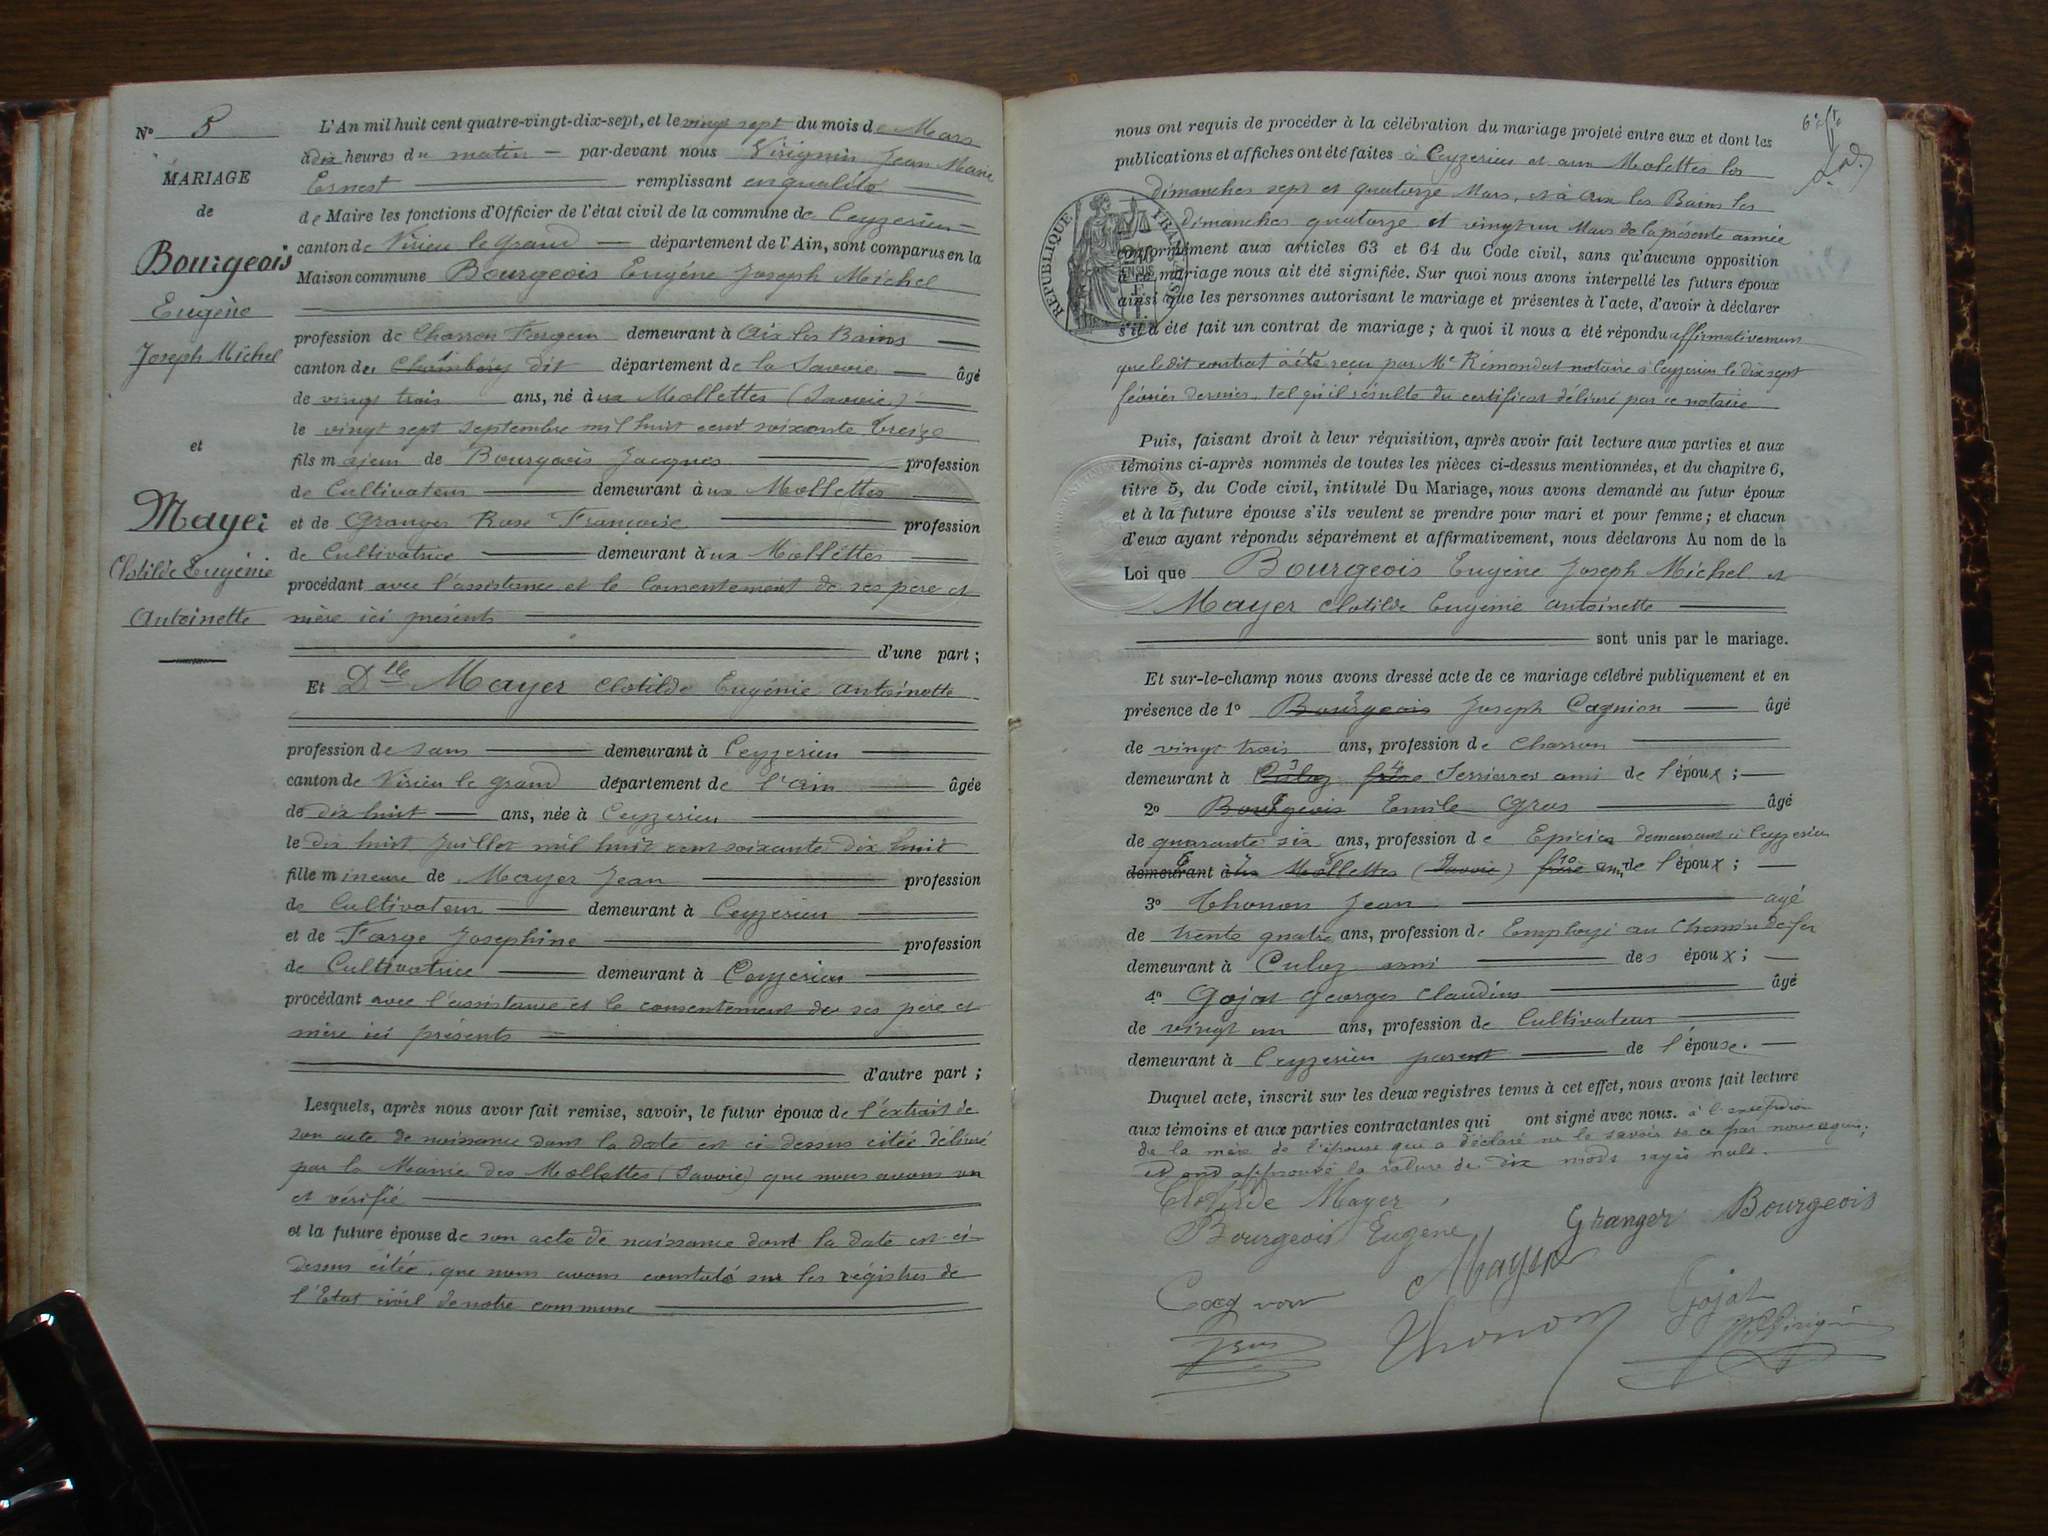 N° 5
MARIAGE
de
Bourgeois
Eugène
Joseph Michel
et
Mayer
Clotilde Eugénie
Antoinette
L'An mil huit cent quatre-vingt-dix-sept, et le vingt sept du mois de Mars
à dix heures du matin par-devant nous Virignin Jean Marie
Ernest remplissant en qualité
de Maire les fonctions d'Officier de l'état civil de la commune de Ceyzerieu
canton de Virieu le grand département de l'Ain, sont comparus en la
Maison commune Bourgeois Eugéne Joseph Michel
profession de Charron Forgeur demeurant à Aix les Bains
canton de Chambéry dit département de la Savoie âgé
de vingt trois ans, né aux Mollettes (Savoie)
le vingt sept septembre mil huit cent soixante treize
fils majeur de Bourgeois Jacques profession
de Cultivateur demeurant aux Mollettes
et de Granger Rose Françoise profession
de Cultivatrice demeurant aux Mollettes
procédant avec l'assistance et le Consentement de ses père et
mère ici présents
d'une part ;
Et Dlle Mayer Clotilde Eugénie Antoinette
profession de sans demeurant à Ceyzerieu
canton de Virieu le grand département de l'Ain âgée
de dix huit ans, née à Ceyzerieu
le dix huit Juillet mil huit cent soixante dix huit
fille mineure de Mayer Jean profession
de Cultivateur demeurant à Ceyzerieu
et de Farge Josephine profession
de Cultivatrice demeurant à Ceyzerieu
procédant avec l'assistance et le consentement de ses père et
mère ici présents
d'autre part ;
Lesquels, après nous avoir fait remise, savoir, le futur époux de l'extrait de
son acte de naissance dont la date est ci dessus citée délivré
par la Mairie des Mollettes (Savoie) que nous avons vu
et vérifié
et la future épouse de son acte de naissance dont la date est ci
dessus citée, que nous avons constaté sur les régistres de
l'Etat civil de notre commune
nous ont requis de procéder à la célébration du mariage projeté entre eux et dont les
publications et affiches ont été faites à Ceyzerieu et aux Molettes les
dimanches sept et quatorze Mars, et à Aix les Bains les
dimanches quatorze et vingt un Mars de la présente année
conformément aux articles 63 et 64 du Code civil, sans qu'aucune opposition
à ce mariage nous ait été signifiée. Sur quoi nous avons interpellé les futurs époux
ainsi que les personnes autorisant le mariage et présentes à l'acte, d'avoir à déclarer
s'il a été fait un contrat de mariage ; à quoi il nous a été répondu affirmativement
que le dit contrat a été reçu par Me Rémondat notaire à Ceyzerieu le dix sept
février dernier, tel qu'il résulte du certificat délivré par ce notaire
RÉPUBLIQUE FRANÇAISE
Puis, faisant droit à leur réquisition, après avoir fait lecture aux parties et aux
témoins ci-après nommés de toutes les pièces ci-dessus mentionnées, et du chapitre 6,
titre 5, du Code civil, intitulé Du Mariage, nous avons demandé au futur époux
et à la future épouse s'ils veulent se prendre pour mari et pour femme ; et chacun
d'eux ayant répondu séparément et affirmativement, nous déclarons Au nom de la
Loi que Bourgeois Eugène Joseph Michel et
Mayer Clotilde Eugénie Antoinette
sont unis par le mariage.
Et sur-le-champ nous avons dressé acte de ce mariage célébré publiquement et en
présence de 1° Bourgeois Joseph Cagnion âgé
de vingt trois ans, profession de Charron
demeurant à Culoz frère Serrieres ami de l'époux ;
2° Bourgeois Emile Gros âgé
de quarante six ans, profession de Epicier demeurant à Ceyzerieu
demeurant aux Mollettes (Savoie) frère ami de l'époux ;
3° Thonon Jean agé
de trente quatre ans, profession de Employé au Chemin de fer
demeurant à Culoz ami des époux ;
4° Gojat Georges Claudius âgé
de vingt un ans, profession de Cultivateur
demeurant à Ceyzerieu parent de l'épouse.
Duquel acte, inscrit sur les deux registres tenus à cet effet, nous avons fait lecture
aux témoins et aux parties contractantes qui ont signé avec nous. à l'exception
de la mère de l'épouse qui a déclaré ne le savoir de ce par nous requis;
et ont approuvé la rature de dix mots rayés nuls.
Clotilde Mayer
Bourgeois Eugène Granger Bourgeois
Mayer
Gojat
Thonon